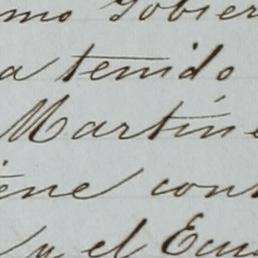 mo Gobier
a tenido
Martine
ene cont
y el Ecu